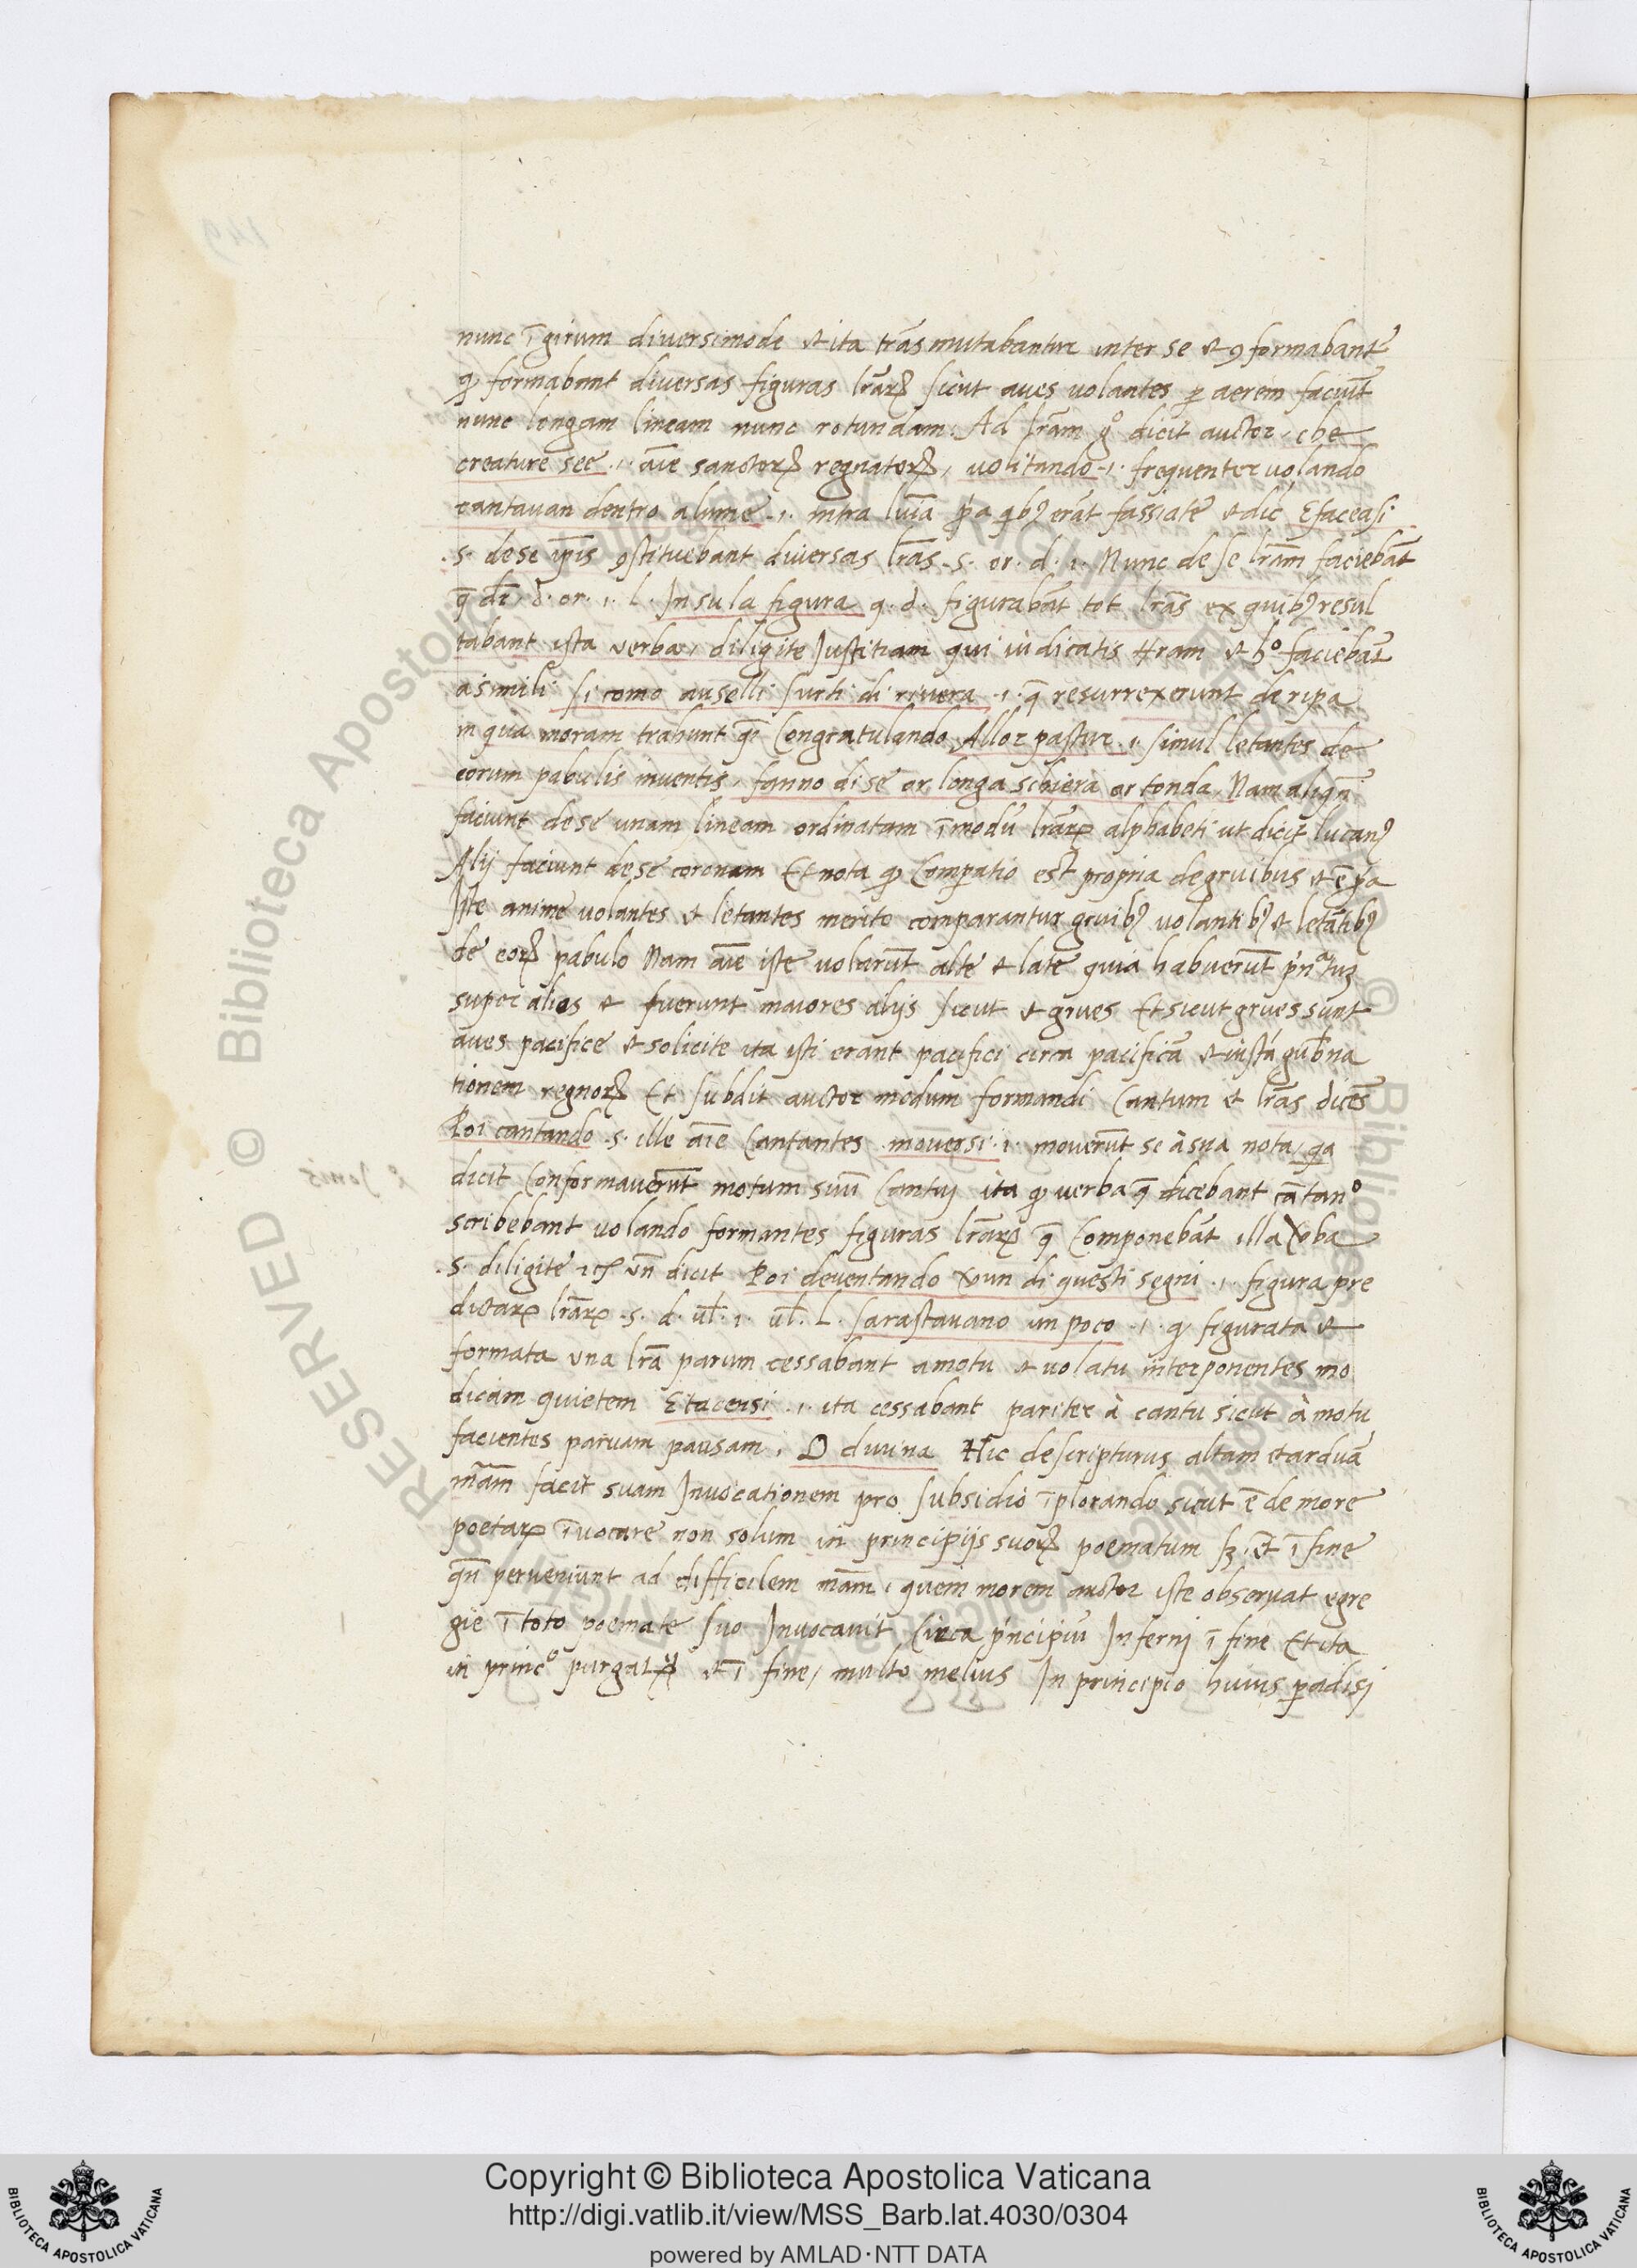 nunc ī girum diversimode et ita trāsmutabantur inter se et ꝯformabant᷑
ꝙ formabant diversas figuras lr̄aꝝ sicut aves volantes ꝑ aerem faciūt
nunc longam lineam nunc rotundam. Ad lr̄am gᵒ dicit auctor, che
creature see .ı. aīe sanctorꝝ regnatorꝝ, volitando .ı. frequenter volando
cantavan dentro alume .ı. intra lumīa erāt fassiate et dic̄ Efaceasi
.s. de se ip̄is ꝯstituebant diversas lr̄as .s. or. d. ı. Nunc de se lr̄am faciebāt
q̄ dr̄. d. or. ı. l. In sula figura q. d. figurabāt tot lr̄as ex quibꝫ resul
tabant ista verba, diligite Justitiam qui iudicatis tr̄ram et hᵒ faciebāt
a simili si como auselli surti di rivera .ı. q̄ resurrexerunt de ripa
in qua moram trahunt Congratulando Allor pasture .ı. simul letantes de
eorum pabulis inventis, fanno di sé or longa schiera or tonda, Nam aliqn̄
faciunt de se unam lineam ordinatam ī modū lr̄aꝝ alphabeti ut dicit lucanꝫ
Alij faciunt de se coronam Et nota ꝙ Comꝑatio est propria de gruibus et
Iste anime volantes et letantes merito comparantur gruibꝫ volantibꝫ et letātibꝫ
de eoꝝ pabulo Nam aīe iste volarūt alte et late quia habuerūt
super alios et fuerunt maiores alijs sicut et grues Et sicut grues sunt
aves pacifice et solicite ita isti erant pacifici circa pacificā et iustā gub̄na
tionem regnoꝝ Et subdit auctor modum formandi Cantum et lr̄as dicēs
Poi cantando .s. ille aīe Cantantes moversi .ı. moverūt se à sua nota, qa
dicit Conformaverūt motum suū Cantuj ita ꝙ verba q̄ dicebant cātanᵒ
scribebant volando formantes figuras lr̄aꝝ q̄ Componebāt illa v̄ba
.s. diligite un̄ dicit Poi deventando un di questi segni .ı. figura pre
dictaꝝ lr̄aꝝ .s. d. ul̄. ı. ul̄. L. Sarastavano un poco .ı. ꝙ figurata et
formata una lr̄a parum cessabant a motu et volatu interponentes mo
dicam quietem Etacensi .ı. ita cessabant pariter à cantu sicut à motu
facientes parvam pausam. O divina Hic descripturus altam et arduā
mām facit suam Invocationem pro subsidio īplorando sicut ē de more
poetaꝝ īvocare non solum in principijs suoꝝ poematum sꝫ et ī fine
qn̄ perveniunt ad difficilem mām, quem morem auctor iste observat egre
gie ī toto poemate suo Invocavit Circa pi̇ncipiū Infernj ī fine Et ita
in princᵒ et ī fine, multo melius In principio huius ꝑadisj
Copyright © Biblioteca Apostolica Vaticana
http://digi.vatlib.it/view/MSS_Barb.lat.4030/0304
powered by AMLAD·NTT DATA
BIBLIOTECA APOSTOLICA VATICANA
BIBLIOTECA APOSTOLICA VATICANA